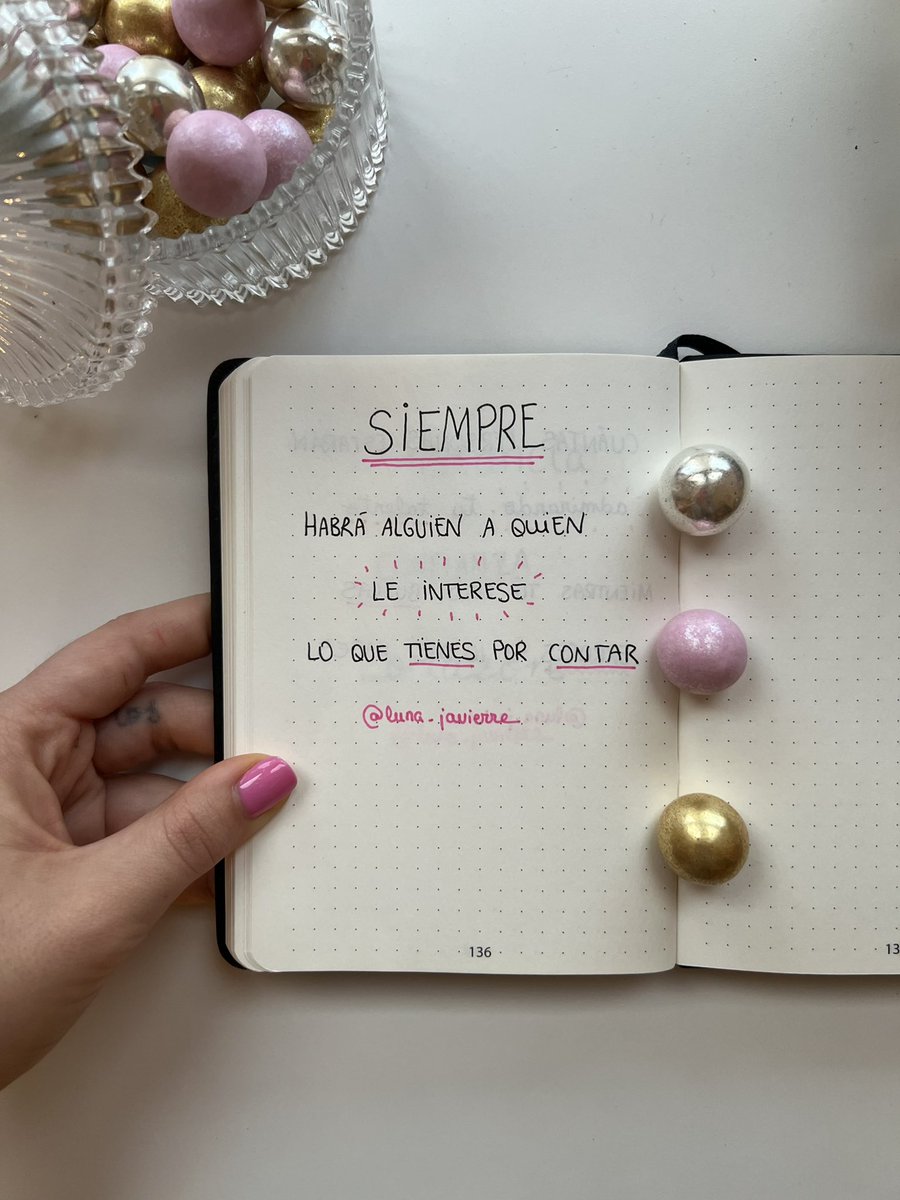 SIEMPRE
HABRÁ ALGUIEN A QUIEN
LE INTERESE
LO QUE TIENES POR CONTAR
@luna.javierre
136